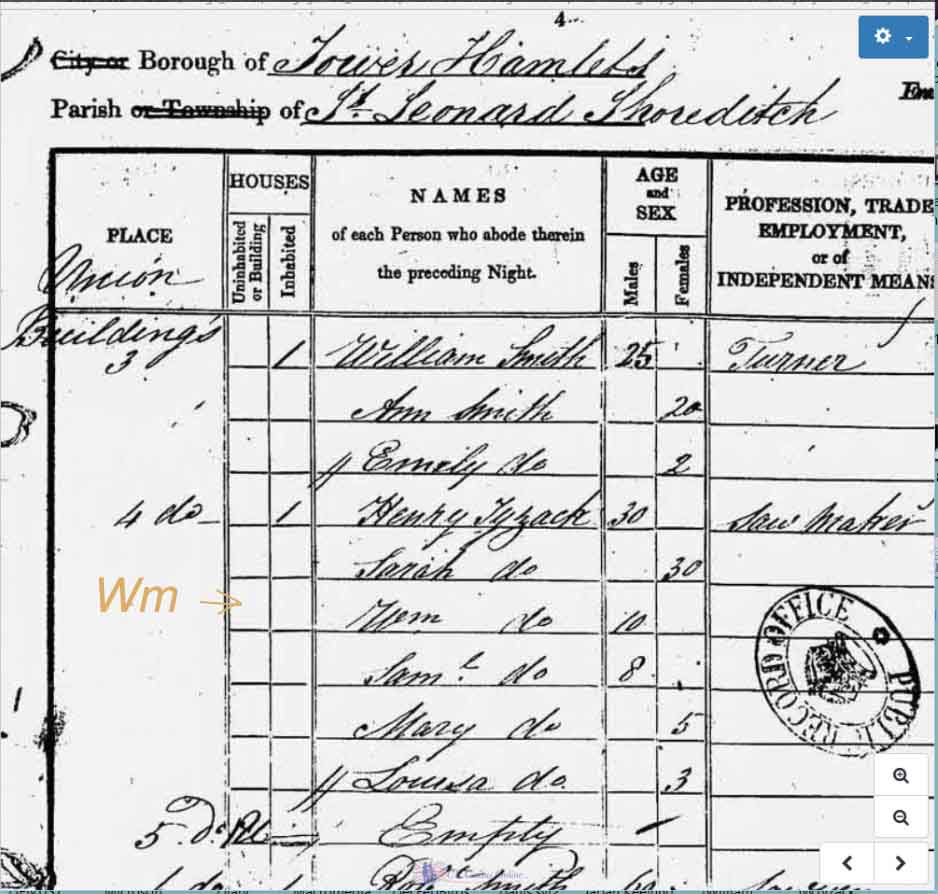 4
City or Borough of Tower Hamlets
Parish or Township of St. Leonard Shoreditch
PLACE
HOUSES
Uninhabited or Building
Inhabited
NAMES
of each Person who abode therein
the preceding Night.
AGE
and
SEX
Males
Females
PROFESSION, TRADE
EMPLOYMENT,
or of
INDEPENDENT MEANS
Union
Buildings
3 1 William Smith 25 Turner
Ann Smith 20
Emily do 2
4 do 1 Henry Tyzack 30 Saw Maker
Sarah do 30
Wm
Wm do 10
Saml. do 8
Mary do 5
Louisa do 3
5 Do Empty
PUBLIC RECORD OFFICE